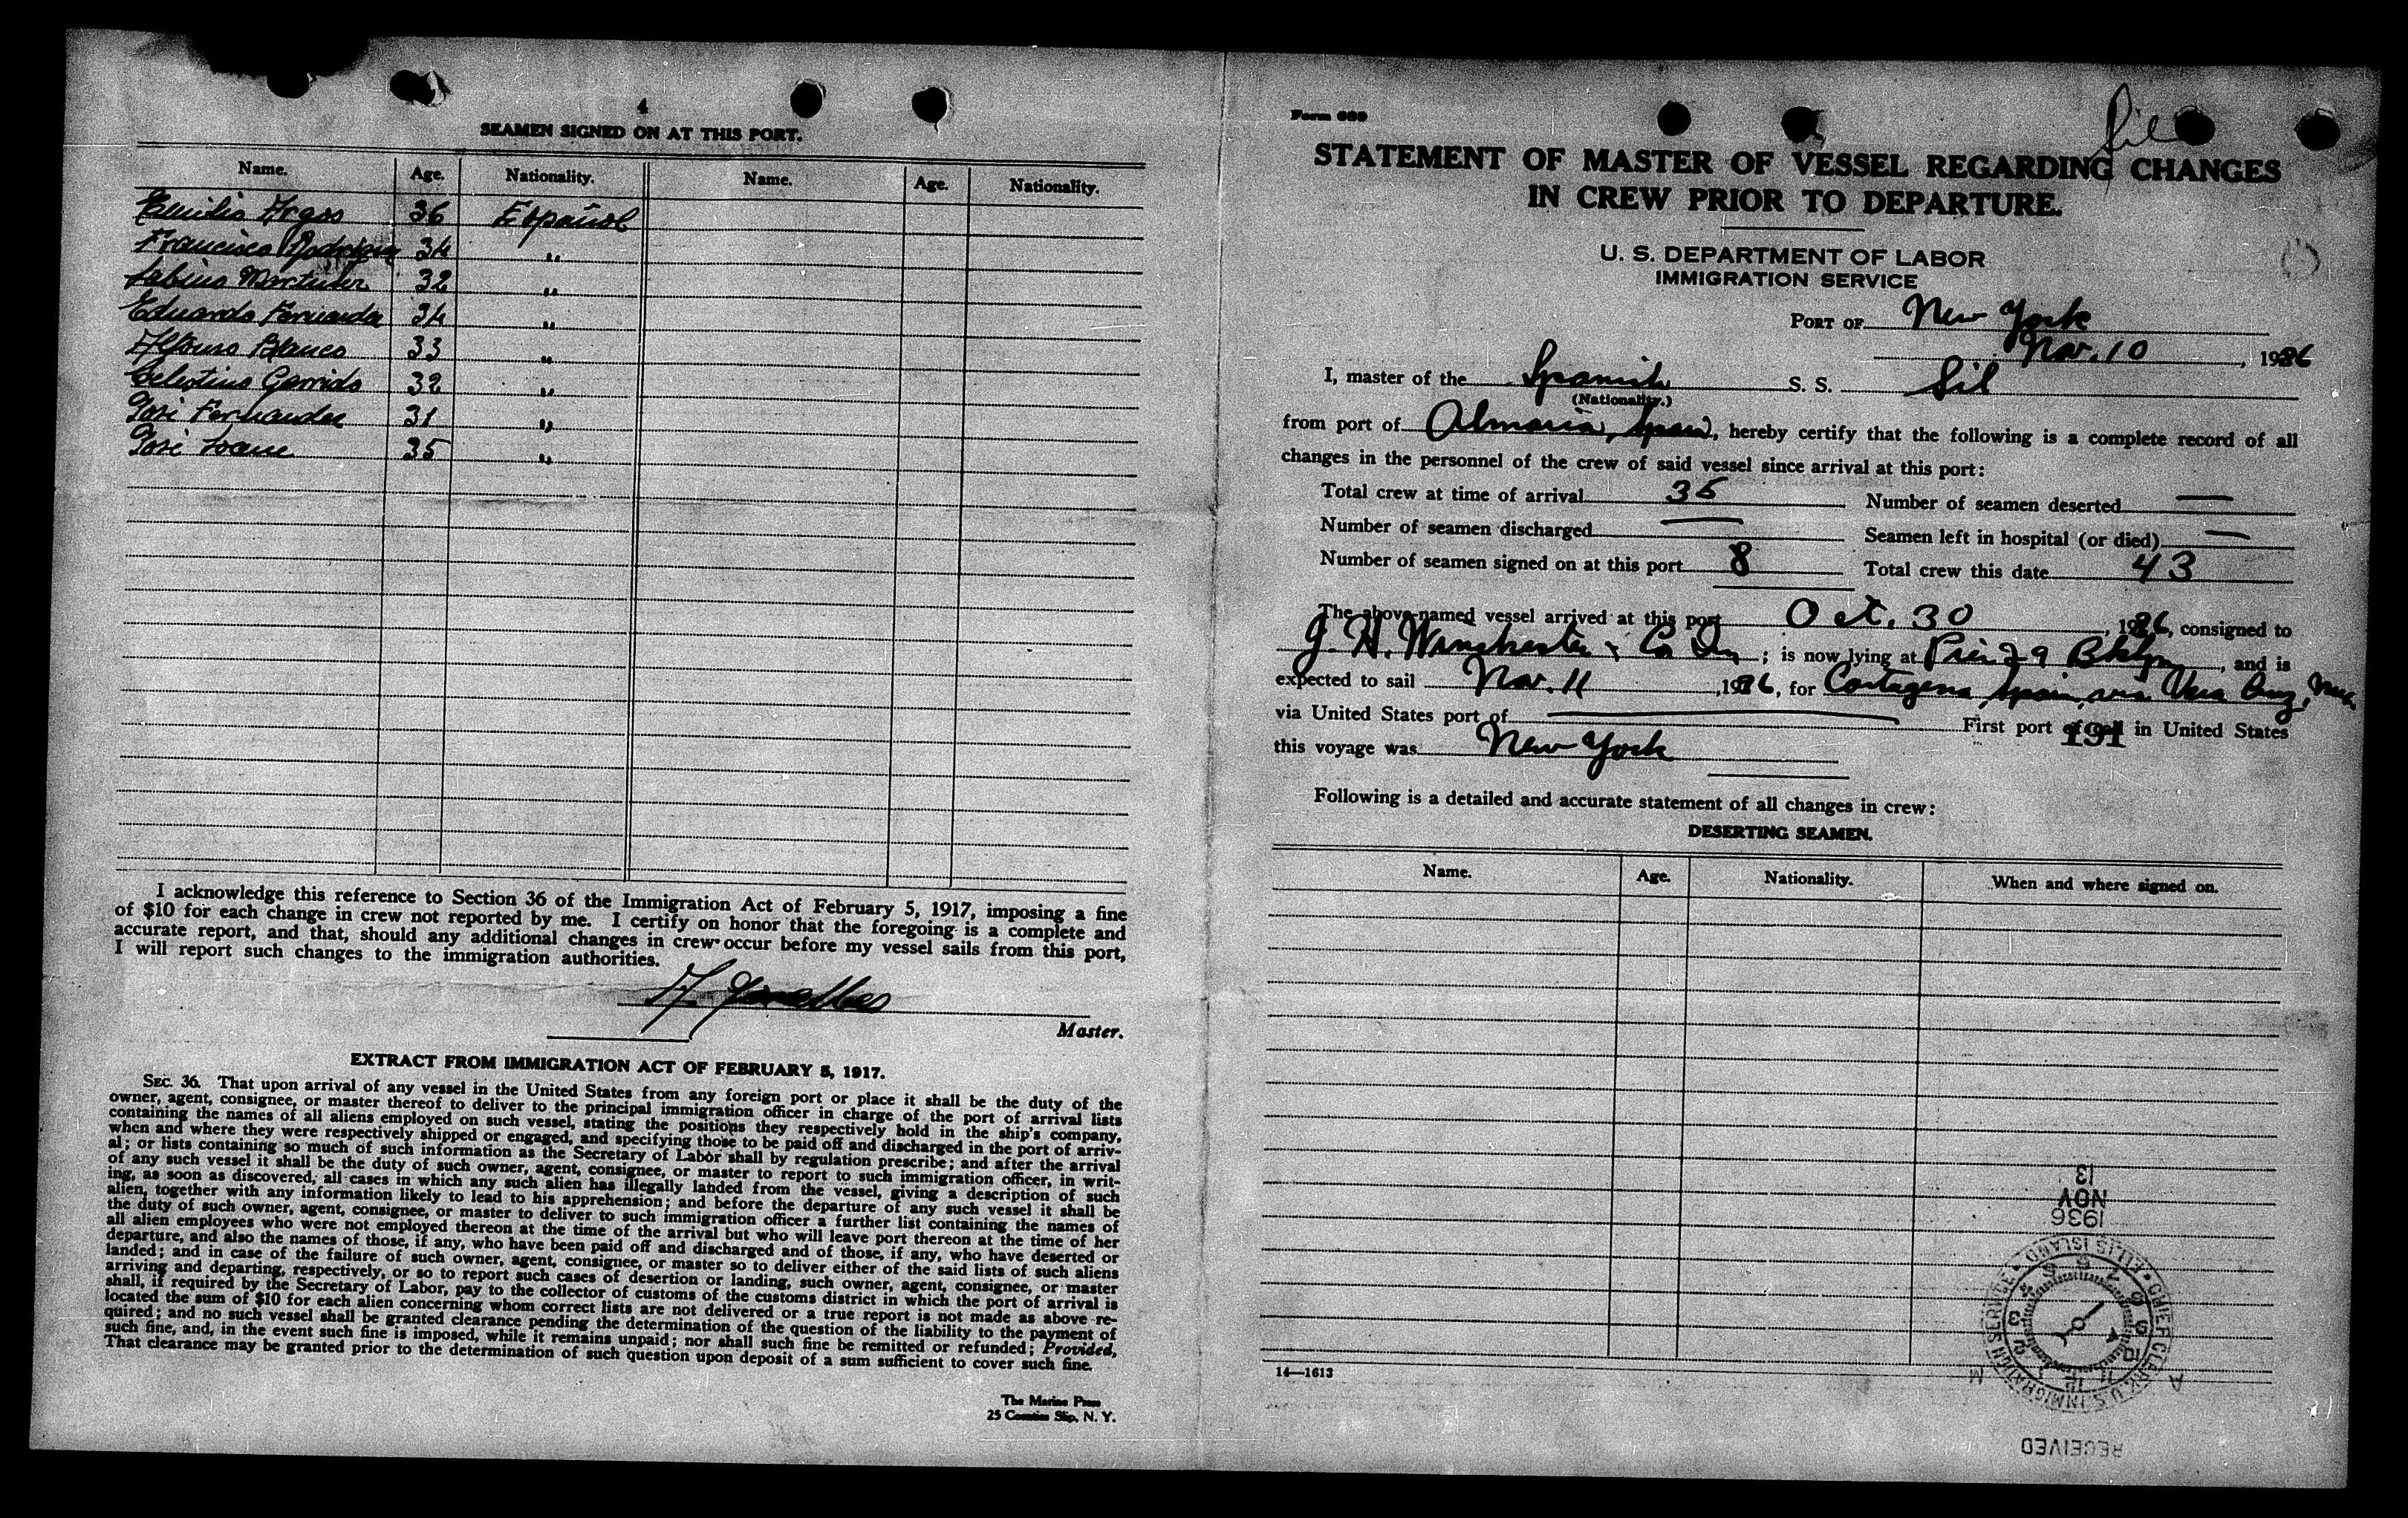 4
SEAMEN SIGNED ON AT THIS PORT.
Name. Age. Nationality. Name. Age. Nationality.
Emilio Argos 36 Español
Francisco Rodriguez 34 "
Sabino Martinez 32 "
Eduardo Fernandez 34 "
Alfonso Blanco 33 "
Celestino Garrido 32 "
José Fernandez 31 "
José 35 "
I acknowledge this reference to Section 36 of the Immigration Act of February 5, 1917, imposing a fine
of $10 for each change in crew not reported by me. I certify on honor that the foregoing is a complete and
accurate report, and that, should any additional changes in crew occur before my vessel sails from this port,
I will report such changes to the immigration authorities.
Master.
EXTRACT FROM IMMIGRATION ACT OF FEBRUARY 5, 1917.
SEC. 36. That upon arrival of any vessel in the United States from any foreign port or place it shall be the duty of the
owner, agent, consignee, or master thereof to deliver to the principal immigration officer in charge of the port of arrival lists
containing the names of all aliens employed on such vessel, stating the positions they respectively hold in the ship's company,
when and where they were respectively shipped or engaged, and specifying those to be paid off and discharged in the port of arriv-
al; or lists containing so much of such information as the Secretary of Labor shall by regulation prescribe; and after the arrival
of any such vessel it shall be the duty of such owner, agent, consignee, or master to report to such immigration officer, in writ-
ing, as soon as discovered, all cases in which any such alien has illegally landed from the vessel, giving a description of such
alien, together with any information likely to lead to his apprehension; and before the departure of any such vessel it shall be
the duty of such owner, agent, consignee, or master to deliver to such immigration officer a further list containing the names of
all alien employees who were not employed thereon at the time of the arrival but who will leave port thereon at the time of her
departure, and also the names of those, if any, who have been paid off and discharged and of those, if any, who have deserted or
landed; and in case of the failure of such owner, agent, consignee, or master so to deliver either of the said lists of such aliens
arriving and departing, respectively, or so to report such cases of desertion or landing, such owner, agent, consignee, or master
shall, if required by the Secretary of Labor, pay to the collector of customs of the customs district in which the port of arrival is
located the sum of $10 for each alien concerning whom correct lists are not delivered or a true report is not made as above re-
quired; and no such vessel shall be granted clearance pending the determination of the question of the liability to the payment of
such fine, and, in the event such fine is imposed, while it remains unpaid; nor shall such fine be remitted or refunded; Provided,
That clearance may be granted prior to the determination of such question upon deposit of a sum sufficient to cover such fine.
The Marine Press
25 Coenties Slip, N. Y.
Form 689
Sil
STATEMENT OF MASTER OF VESSEL REGARDING CHANGES
IN CREW PRIOR TO DEPARTURE.
U. S. DEPARTMENT OF LABOR
IMMIGRATION SERVICE
PORT OF New York
Nov. 10, 1936
I, master of the Spanish S. S. Sil
(Nationality.)
from port of Almaria, Spain, hereby certify that the following is a complete record of all
changes in the personnel of the crew of said vessel since arrival at this port:
Total crew at time of arrival 35 Number of seamen deserted —
Number of seamen discharged — Seamen left in hospital (or died) —
Number of seamen signed on at this port 8 Total crew this date 43
The above-named vessel arrived at this port Oct. 30, 1936, consigned to
J. H. Winchester & Co Inc; is now lying at Pier 29 Bklyn, and is
expected to sail Nov. 11, 1936, for Cartagena, Spain, via Vera Cruz, Mex
via United States port of — First port of call in United States
191
this voyage was New York
Following is a detailed and accurate statement of all changes in crew:
DESERTING SEAMEN.
Name. Age. Nationality. When and where signed on.
14—1613
RECEIVED
CHIEF CLERK U.S. IMMIGRATION SERVICE • ELLIS ISLAND •
A M
1936
NOV
13